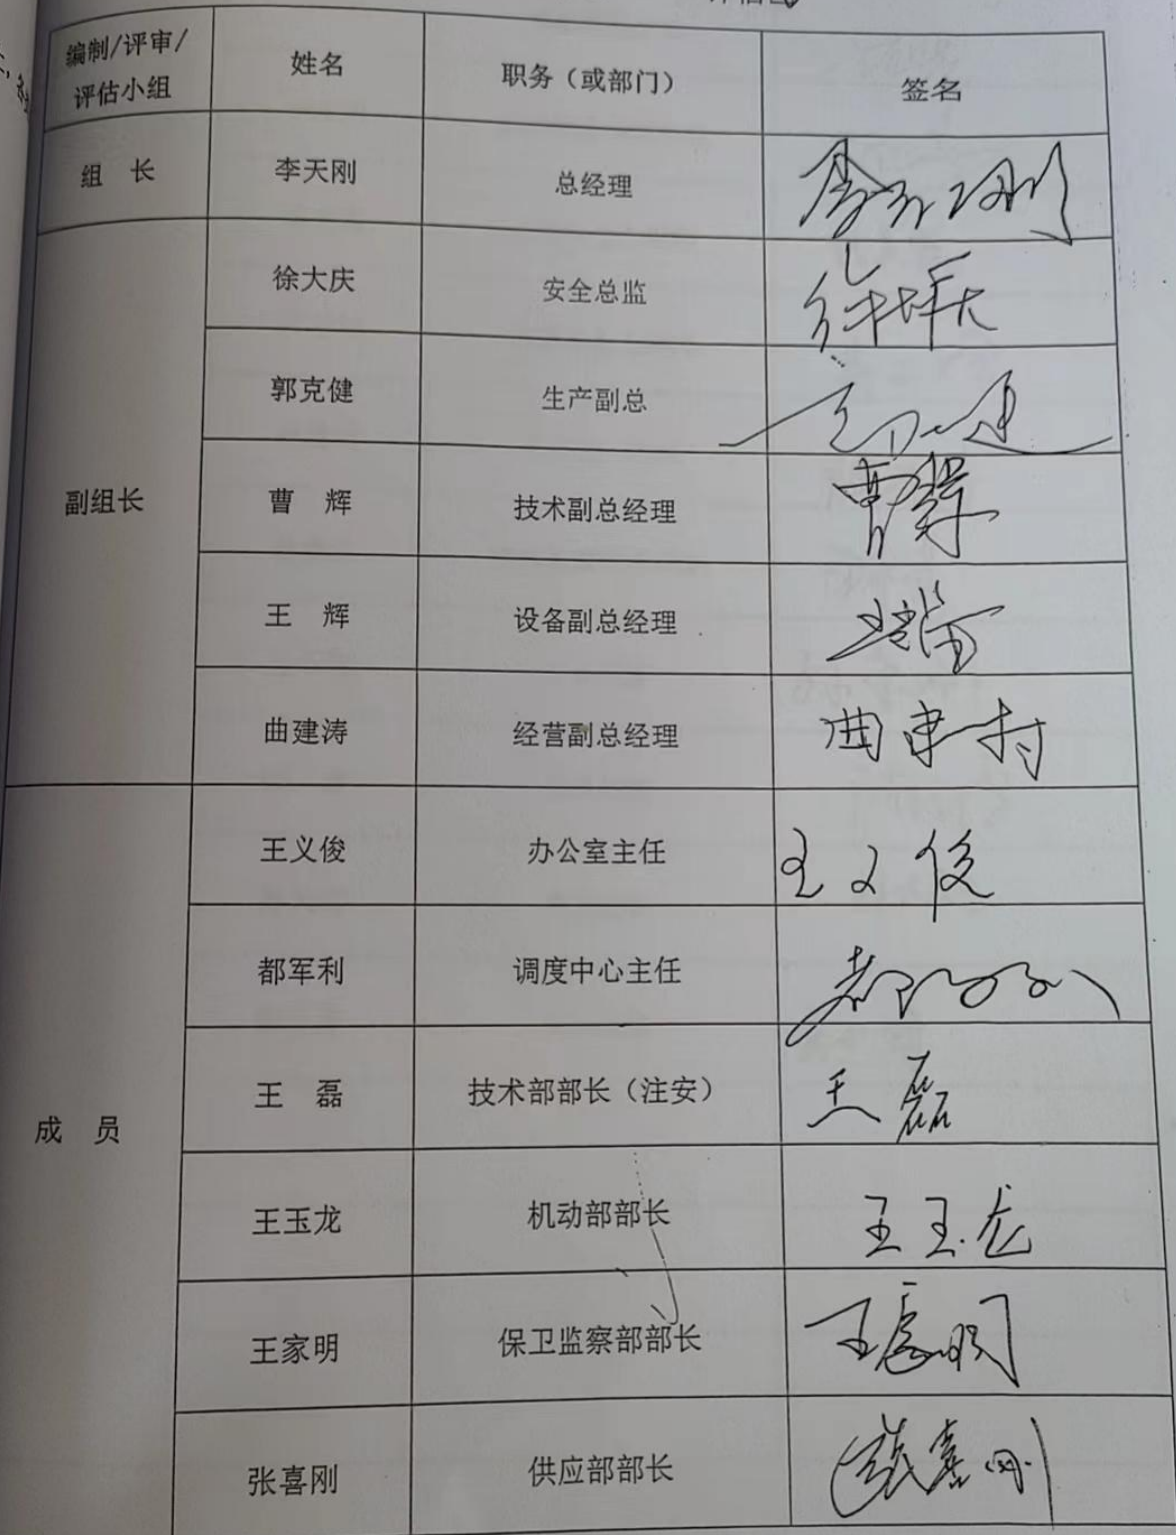 编制/评审/
评估小组 姓名 职务（或部门） 签名
组 长 李天刚 总经理 李天刚
徐大庆 安全总监
郭克健 生产副总
副组长 曹 辉 技术副总经理 曹辉
王 辉 设备副总经理
曲建涛 经营副总经理 曲建涛
王义俊 办公室主任 王义俊
都军利 调度中心主任
成 员 王 磊 技术部部长（注安） 王磊
王玉龙 机动部部长 王玉龙
王家明 保卫监察部部长 王家明
张喜刚 供应部部长 张喜刚